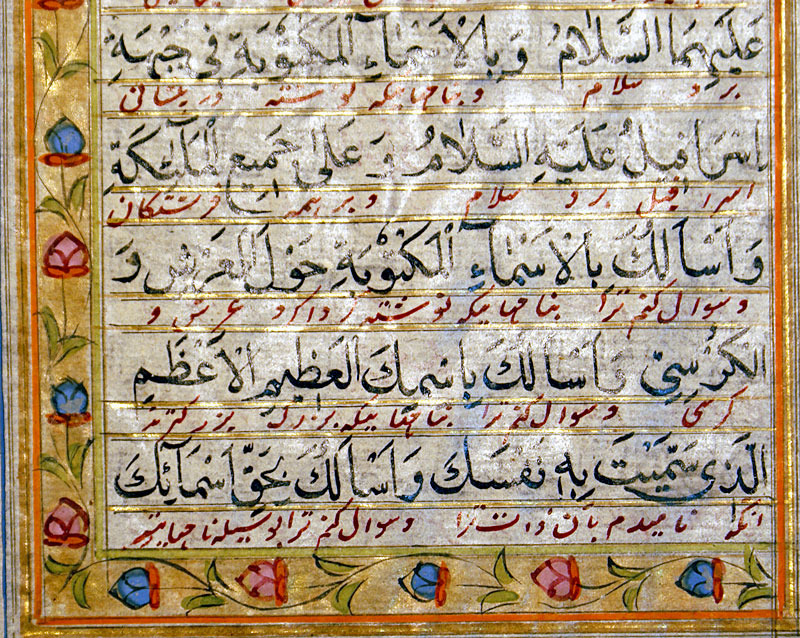 عَلَيْهِمَا السَّلَامُ وَبِالْاَسْمَاءِ الْمَكْتُوبَةِ فِي جَبْهَةِ
برد سلام وبنامهائیکه نوشته در پیشانی
اِسْرَافِيلُ عَلَيْهِ السَّلَامُ وَعَلَى جَمِيعِ الْمَلٰئِكَةِ
اسرافیل برد سلام وبر همه فرشتکان
وَاَسْاَلُكَ بِالْاَسْمَاءِ الْمَكْتُوبَةِ حَوْلَ الْعَرْشِ وَ
وسوال کنم ترا بنامهائیکه نوشته کرد عرش و
الْكُرْسِيِّ وَاَسْاَلُكَ بِاسْمِكَ الْعَظِيمِ الْاَعْظَمِ
کرسی وسوال کنم ترا بنامهائیکه بزرک بزرکترند
الَّذِي سَمَّيْتَ بِهِ نَفْسَكَ وَاَسْاَلُكَ بِحَقِّ اَسْمَائِكَ
آنکه نامیدم بآن ذات ترا وسوال کنم ترا بوسیله نامهایت